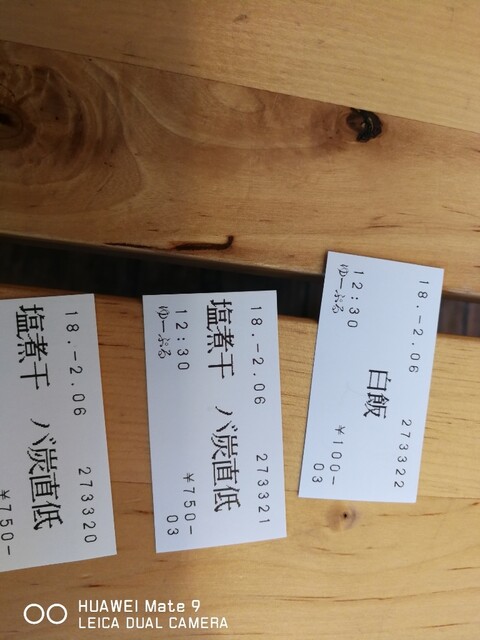 18.-2.06 273320
塩煮干 バ炭直低
¥750-
18.-2.06 273321
塩煮干 バ炭直低
12:30 ¥750-
ゆーぷる 03
18.-2.06 273322
白飯
12:30 ¥100-
ゆーぷる 03
HUAWEI Mate 9
LEICA DUAL CAMERA